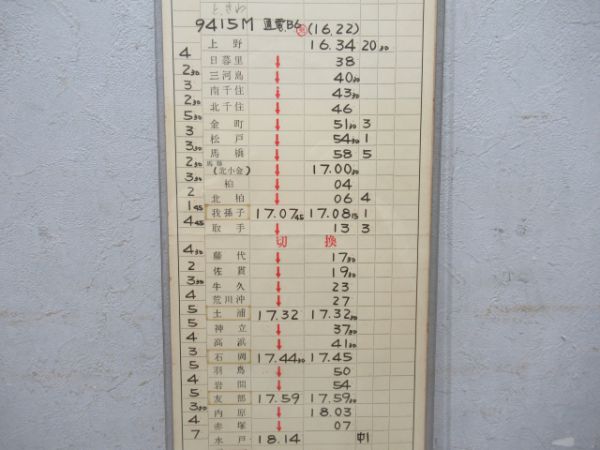 ときわ
9415M 直電B6 (16.22)
上野 16.34 20 30
4
日暮里 ↓ 38
2 30
三河島 ↓ 40 30
3
南千住 ↓ 43 30
2 30
北千住 ↓ 46
5 30
金町 ↓ 51 30 3
3
松戸 ↓ 54 30 1
3 30
馬橋 ↓ 58 5
2 30
(北小金) ↓ 17.00 30
3 30
柏 ↓ 04
2
北柏 ↓ 06 4
1 45
我孫子 17.07 45 17.08 15 1
4 45
取手 ↓ 13 3
切換
4 30
藤代 ↓ 17 30
2
佐貫 ↓ 19 30
3 30
牛久 ↓ 23
4
荒川沖 ↓ 27
5
土浦 17.32 17.32 30
5
神立 ↓ 37 30
4
高浜 ↓ 41 30
3
石岡 17.44 30 17.45
5
羽鳥 ↓ 50
4
岩間 ↓ 54
5
友部 17.59 17.59 30
3 30
内原 ↓ 18.03
4
赤塚 ↓ 07
7
水戸 18.14 中1